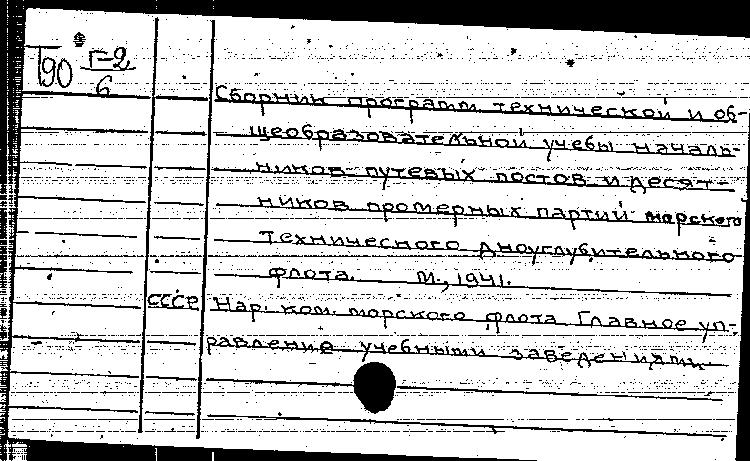 Т90 Г-2
6
Сборник программ технической и об-
щеобразовательной учебы началь-
ников путевых постов и десят-
ников промерных партий морского
технического дноуглубительного
флота. М., 1941.
СССР Нар. ком. морского флота Главное уп-
равление учебными заведениями